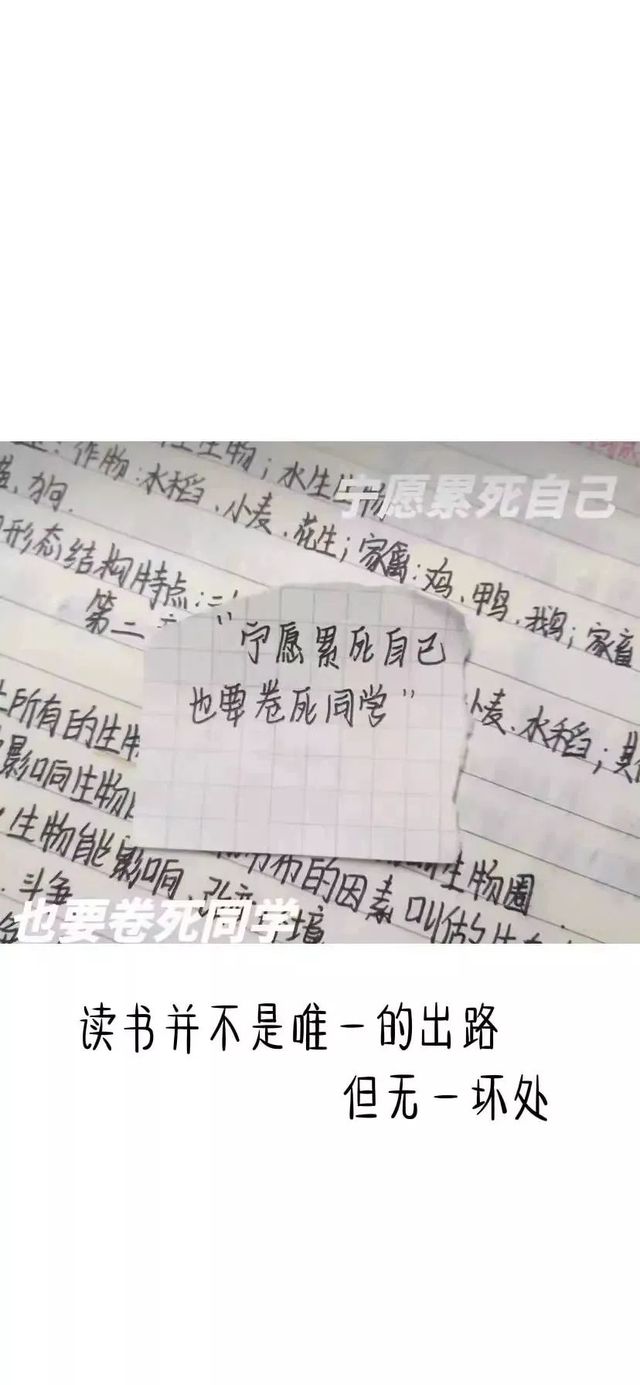 作物:水稻、小麦、花生;家禽:鸡、鸭、鹅;家畜
水生生物
宁愿累死自己
狗.
形态结构特点:
第二
"宁愿累死自己
也要卷死同学"
小麦、水稻;其
所有的生物
影响生物
生物能影响
的因素叫
生物圈
斗争
也要卷死同学
读书并不是唯一的出路
但无一坏处